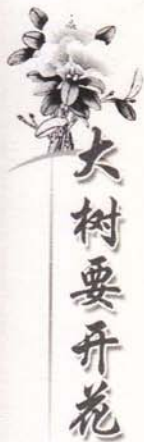 大树要开花